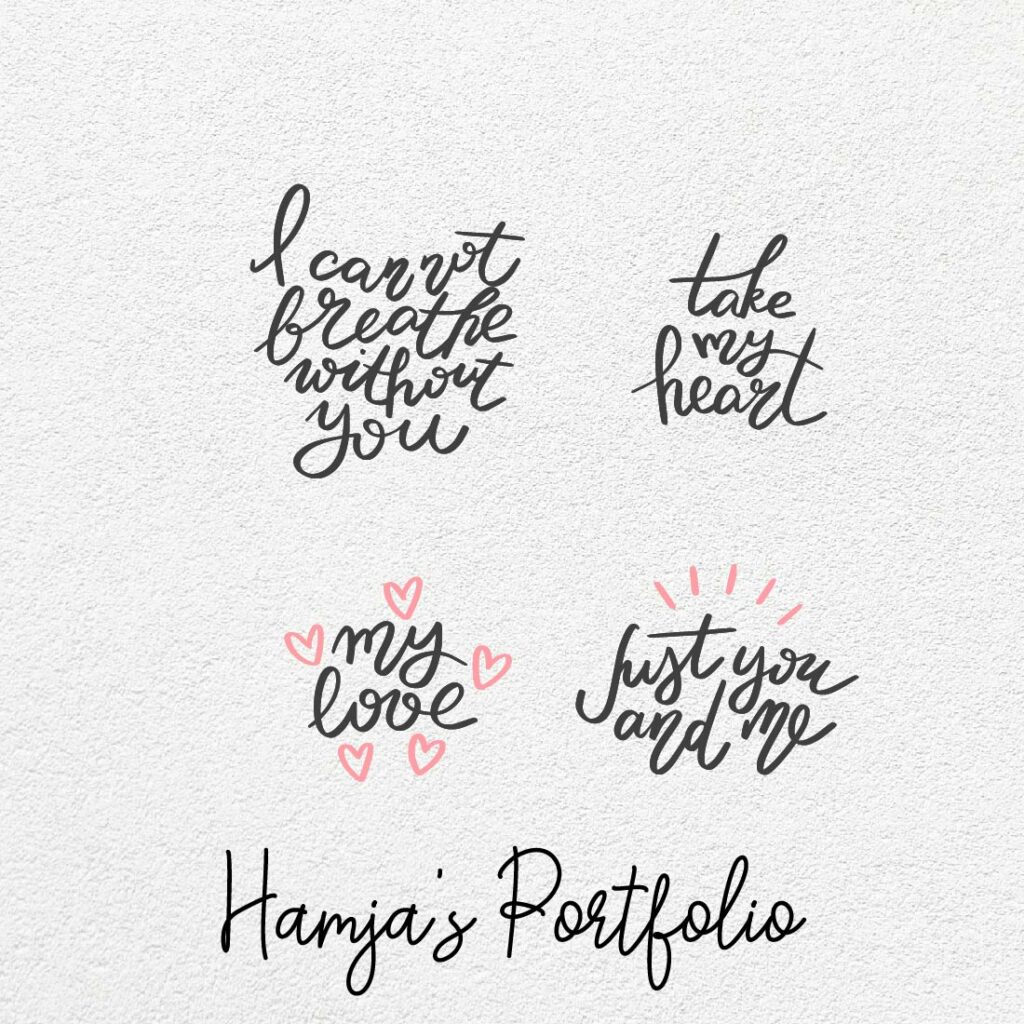 I cannot
breathe
without
you
take
my
heart
my
love
Just you
and me
Hamja's Portfolio